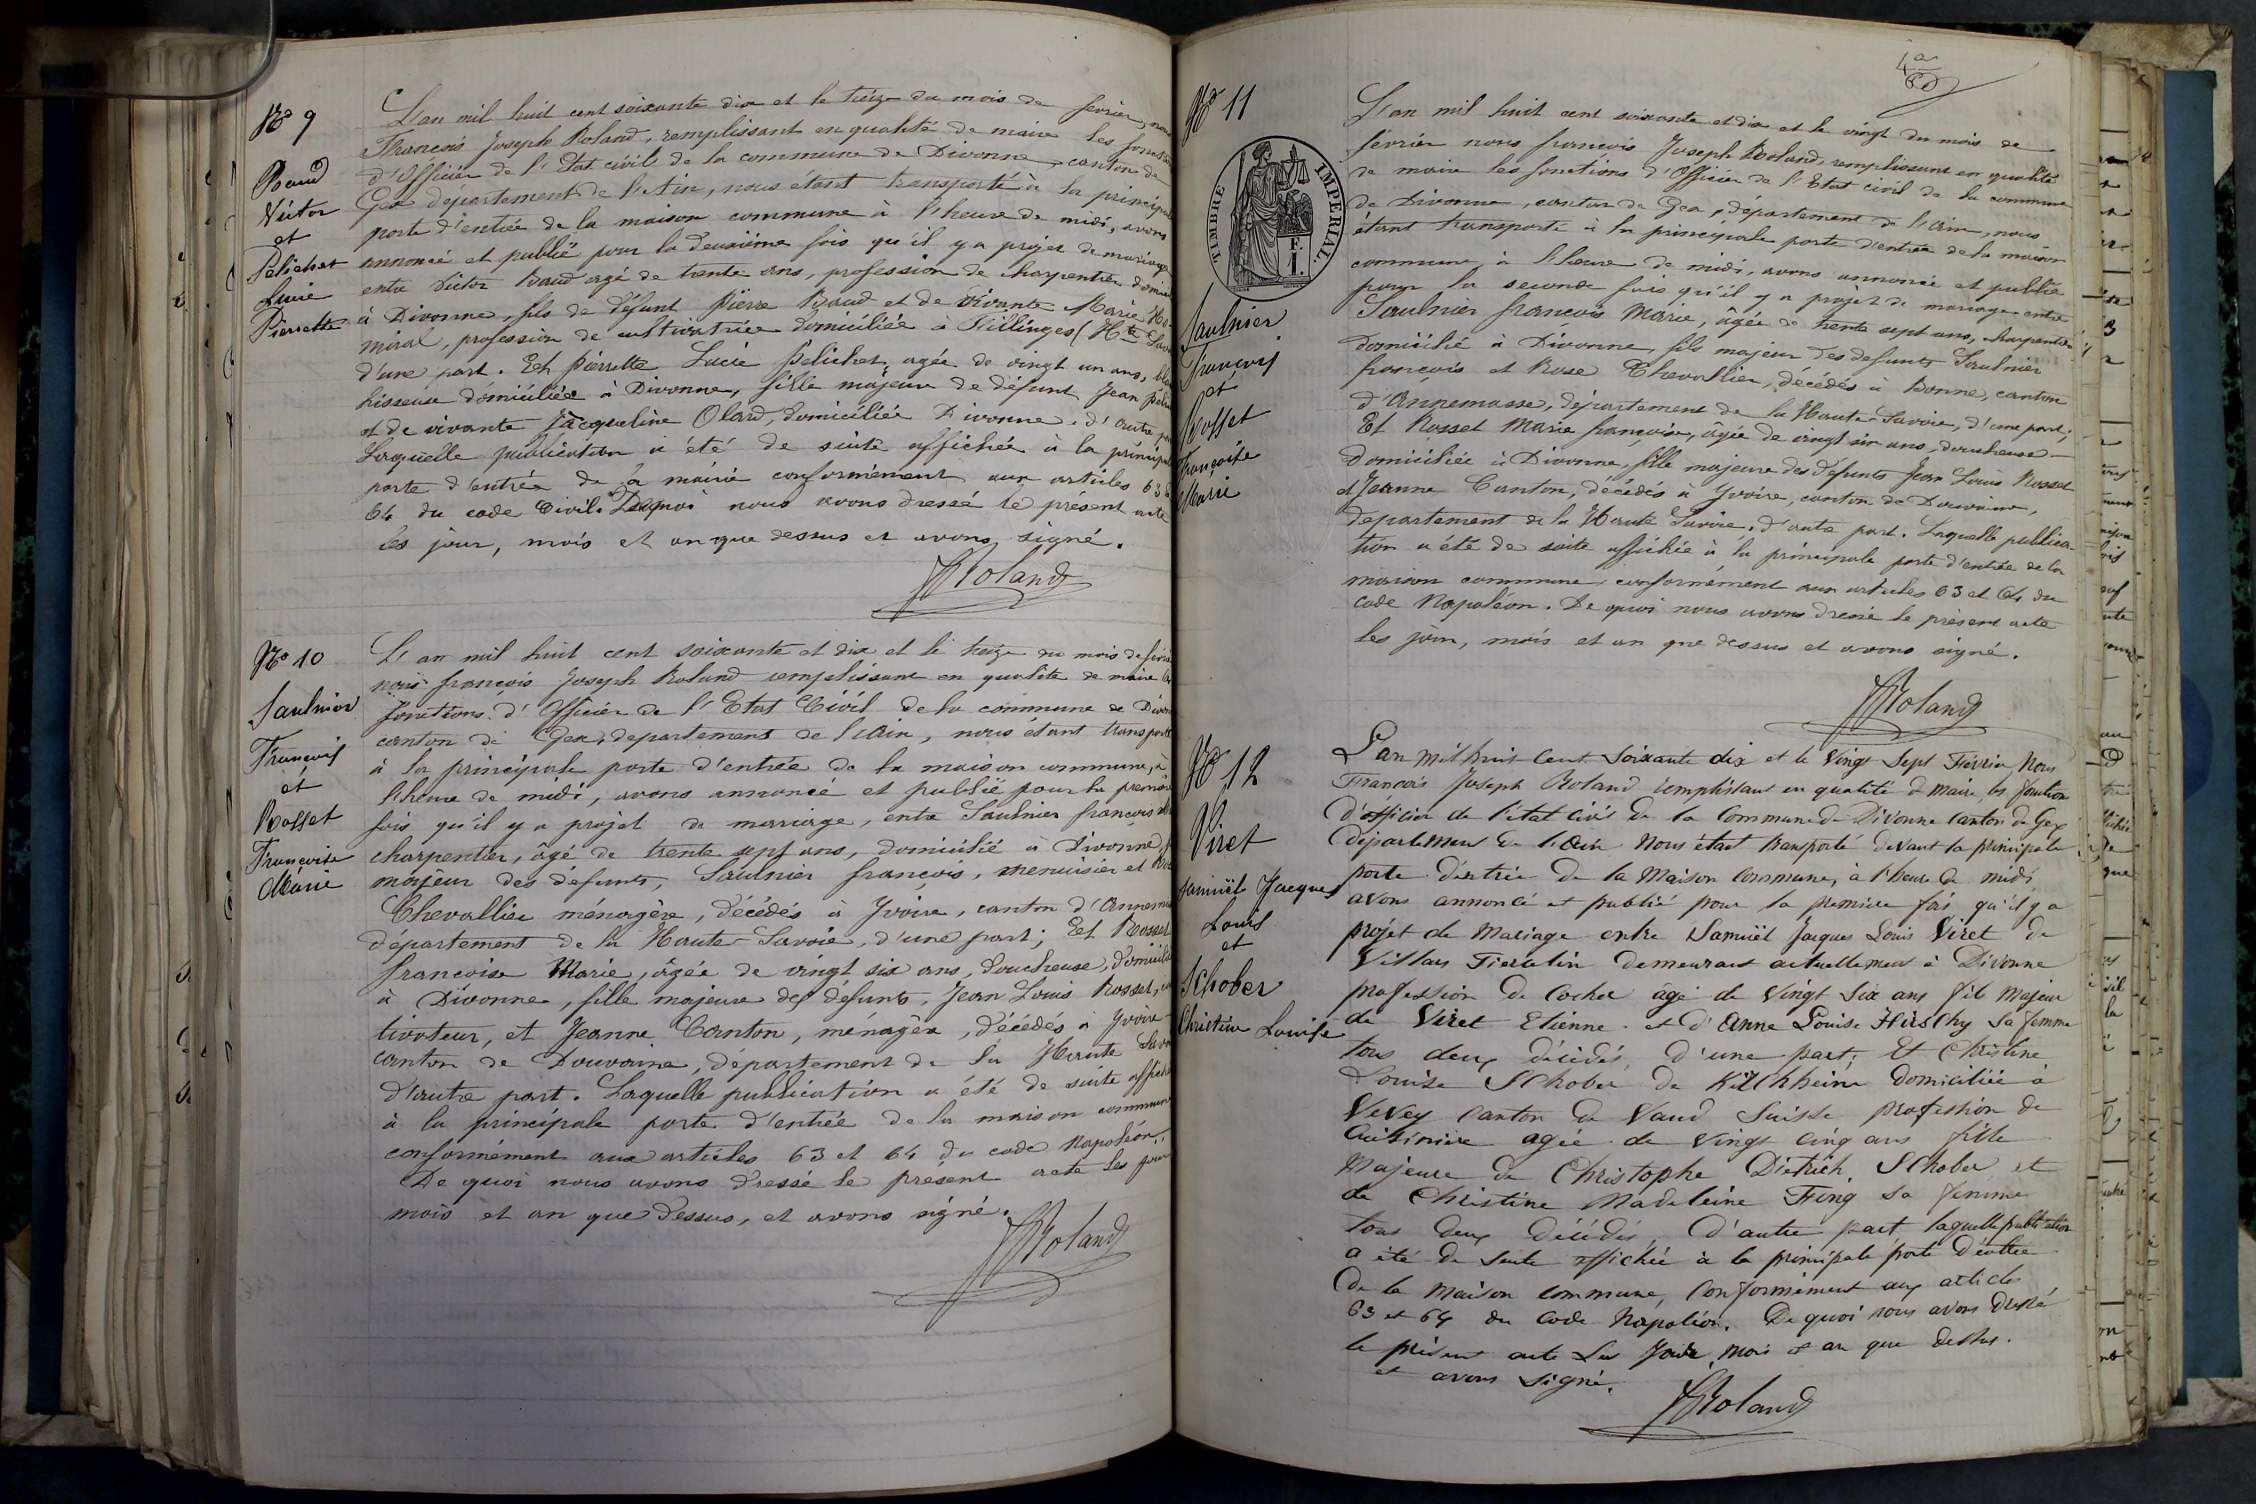 No 9
Baud
Victor
et
Pelichet
Lucie
Pierrette
L'an mil huit cent soixante dix et le treize du mois de fevrier, nous
François Joseph Roland, remplissant en qualité de maire les fonctions
d'Officier de l'Etat civil de la commune de Divonne, canton de
Gex département de l'Ain, nous étant transporté à la principale
porte d'entrée de la maison commune à l'heure de midi, avons
annoncé et publié pour la deuxième fois qu'il y a projet de mariage
entre Victor Baud agé de trente ans, profession de charpentier domici
à Divonne, fils de défunt Pierre Baud et de vivante Marie
miral, profession de cultivatrice domiciliée à Fillinges (Hte Savo
d'une part. Et Pierrette Lucie Pelichet, agée de vingt un ans, blan
hisseuse domiciliée à Divonne, fille majeure de défunt Jean Peli
et de vivante Jacqueline Olard, domiciliée Divonne. d'autre part
Laquelle publication a été de suite affichée à la principale
porte d'entrée de la mairie conformément aux articles 63 &
64 du code Civil. Dequoi nous avons dressé le présent acte
les jour, mois et an que dessus et avons signé.
JRoland
No 10
Saulnier
François
et
Rosset
Françoise
Marie
L'an mil huit cent soixante et dix et le treize du mois de févrie
nous françois Joseph Roland remplissant en qualité de maire les
fonctions d'Officier de l'Etat Civil de la commune de Divon
canton de Gex, departement de l'Ain, nous étant transporté
à la principale porte d'entrée de la maison commune, à
l'heure de midi, avons annoncé et publié pour la première
fois qu'il y a projet de mariage, entre Saulnier françois
charpentier, âgé de trente sept ans, domicilié à Divonne,
majeur des défunts, Saulnier françois, menuisier et Rose
Chevallier ménagère, décédés à Yvoire, canton d'Annema
département de la Haute-Savoie, d'une part; Et Rosset
françoise Marie, âgée de vingt six ans, doucheuse, domicilié
à Divonne, fille majeure des défunts, Jean Louis Rosset, cul
tivateur, et Jeanne Canton, ménagère, décédés à Yvoire
canton de Douvaine, département de la Haute Savo
d'autre part. Laquelle publication a été de suite affiché
à la principale porte d'entrée de la maison commune
conformément aux articles 63 et 64 du code Napoléon.
De quoi nous avons dressé le présent acte les jour
mois et an que dessus, et avons signé.
JRoland
No 11
TIMBRE IMPERIAL.
F. I.
Saulnier
François
et
Rosset
Françoise
Marie
L'an mil huit cent soixante et dix et le vingt du mois de
février nous françois Joseph Roland, remplissant en qualité
de maire les fonctions d'Officier de l'Etat civil de la commune
de Divonne, canton de Gex, département de l'Ain, nous
étant transporté à la principale porte d'entrée de la maison
commune, à l'heure de midi, avons annoncé et publié
pour la seconde fois qu'il y a projet de mariage entre
Saulnier françois Marie, âgée de trente sept ans, charpentier
domicilié à Divonne, fils majeur des defunts Saulnier
françois et Rose Chevallier, décédés à Bonne, canton
d'Annemasse, département de la Haute-Savoie, d'une part;
Et Rosset Marie françoise, âgée de vingt six ans, doucheuse
domiciliée à Divonne, fille majeure des défunts Jean Louis Rosset
et Jeanne Canton, décédés à Yvoire, canton de Douvaine,
departement de la Haute Savoie, d'autre part. Laquelle publica-
tion a été de suite affichée à la principale porte d'entrée de la
maison commune, conformément aux articles 63 et 64 du
code Napoléon. De quoi nous avons dressé le présent acte
les jour, mois et an que dessus et avons signé.
JRoland
No 12
Viret
Samuël Jacques
Louis
et
Schober
Christine Louise
L'an mil huit cent soixante dix et le vingt sept Février, Nous
François Joseph Roland remplissant en qualité de maire les fonctions
d'officier de l'état Civil de la Commune de Divonne Canton de Gex
département de l'Ain nous étant transporté devant la principale
porte d'entrée de la Maison Commune, à l'heure de midi
avons annoncé et publié pour la première fois qu'il y a
projet de Mariage entre Samuël Jacques Louis Viret de
Villars Tiercelin demeurant actuellement à Divonne
profession de Cocher âgé de vingt six ans fils Majeur
de Viret Etienne et d'Anne Louise Hirschy sa femme
tous deux décédés, d'une part; Et Christine
Louise Schober de Kitchheim domiciliée à
Vevey Canton de Vaud Suisse profession de
Cuisinière agée de vingt cinq ans fille
Majeure de Christophe Dietrich Schober et
de Christine Madeleine Fing sa femme
tous deux décédés, D'autre part laquelle publication
a été de suite affichée à la principale porte d'entrée
de la Maison commune, Conformément aux articles
63 et 64 du Code Napoléon. De quoi nous avons dressé
le présent acte les Jour, Mois et an que dessus.
et avons signé.
JRoland